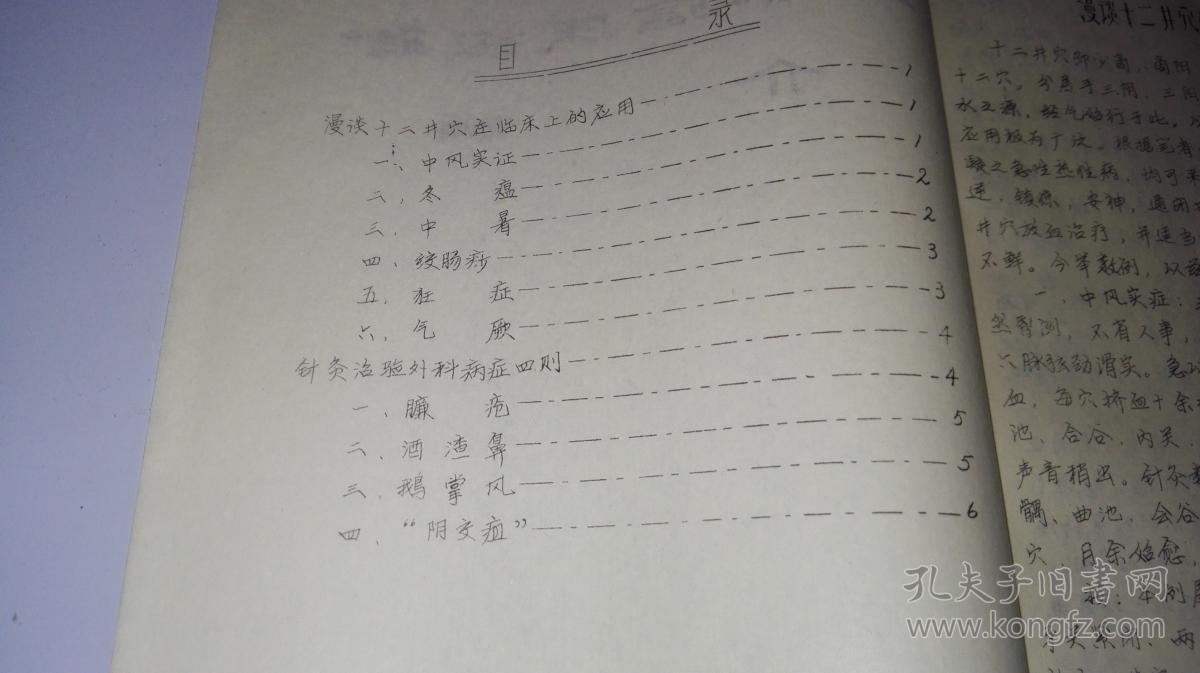 目录
漫谈十二井穴在临床上的应用 1
一、中风实证 1
二、冬瘟 1
三、中暑 2
四、绞肠痧 2
五、狂症 3
六、气厥 3
针灸治验外科病症四则 4
一、臁疮 4
二、酒渣鼻 5
三、鹅掌风 5
四、“阴交疽” 6
漫谈十二井穴
十二井穴即少商、商阳
十二穴。分属手三阴、三阳
水之源，经气始行于此。
应用极为广泛。根据笔者
急性热性病，均可
逆，镇痉，安神，通闭
井穴放血治疗，并适当
不鲜。今举数例，以
一、中风实症：
然昏倒，不省人事，
六脉弦劲滑实。急
血，每穴挤血十余
池、合谷、内关、
声音稍出。针灸
髃、曲池、合谷
穴，月余始愈，
按：本例
两
孔夫子旧书网
www.kongfz.com